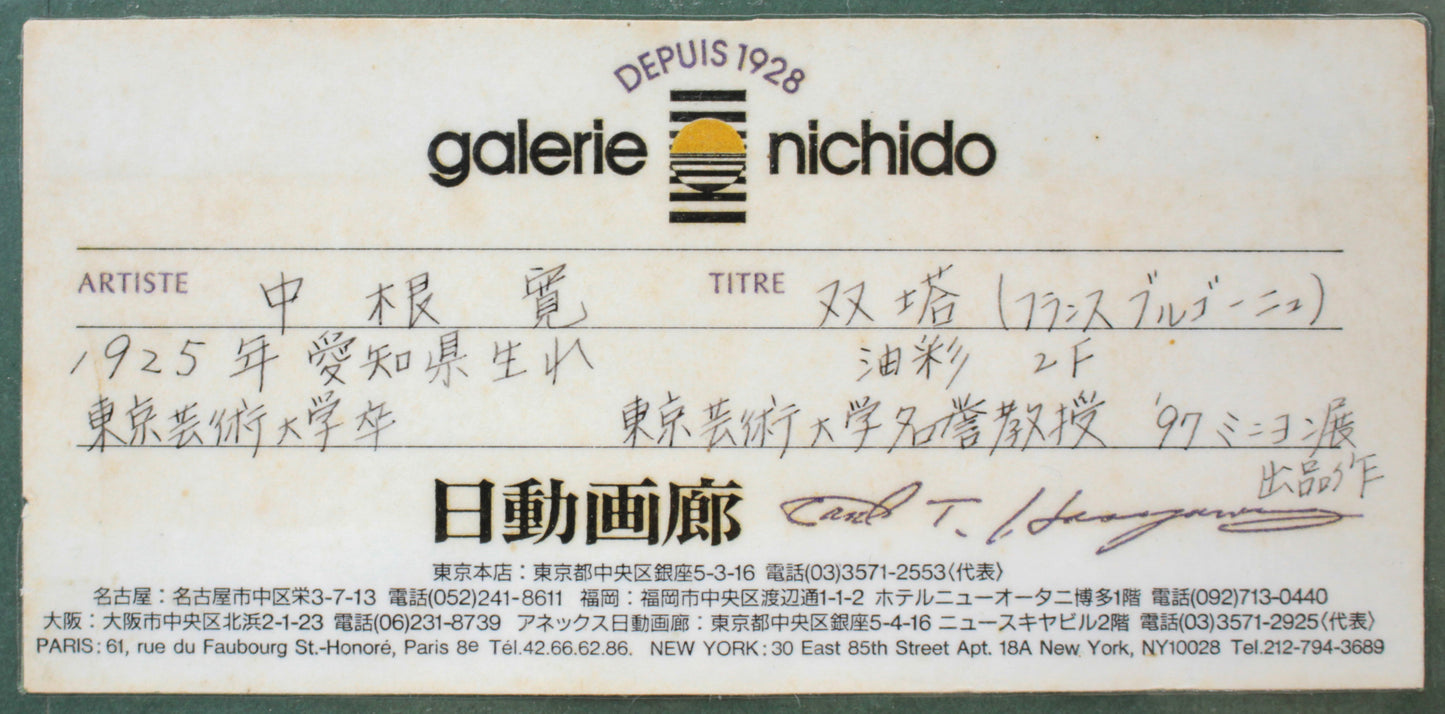 DEPUIS 1928
galerie nichido
ARTISTE 中根 寛 TITRE 双塔 (フランスブルゴーニュ)
1925年 愛知県生れ 油彩 2F
東京芸術大学卒 東京芸術大学名誉教授 '97 ミニヨン展
出品作
日動画廊
東京本店：東京都中央区銀座5-3-16 電話(03)3571-2553〈代表〉
名古屋：名古屋市中区栄3-7-13 電話(052)241-8611 福岡：福岡市中央区渡辺通1-1-2 ホテルニューオータニ博多1階 電話(092)713-0440
大阪：大阪市中央区北浜2-1-23 電話(06)231-8739 アネックス日動画廊：東京都中央区銀座5-4-16 ニュースキヤビル2階 電話(03)3571-2925〈代表〉
PARIS: 61, rue du Faubourg St.-Honoré, Paris 8e Tél.42.66.62.86. NEW YORK: 30 East 85th Street Apt. 18A New York, NY10028 Tel.212-794-3689